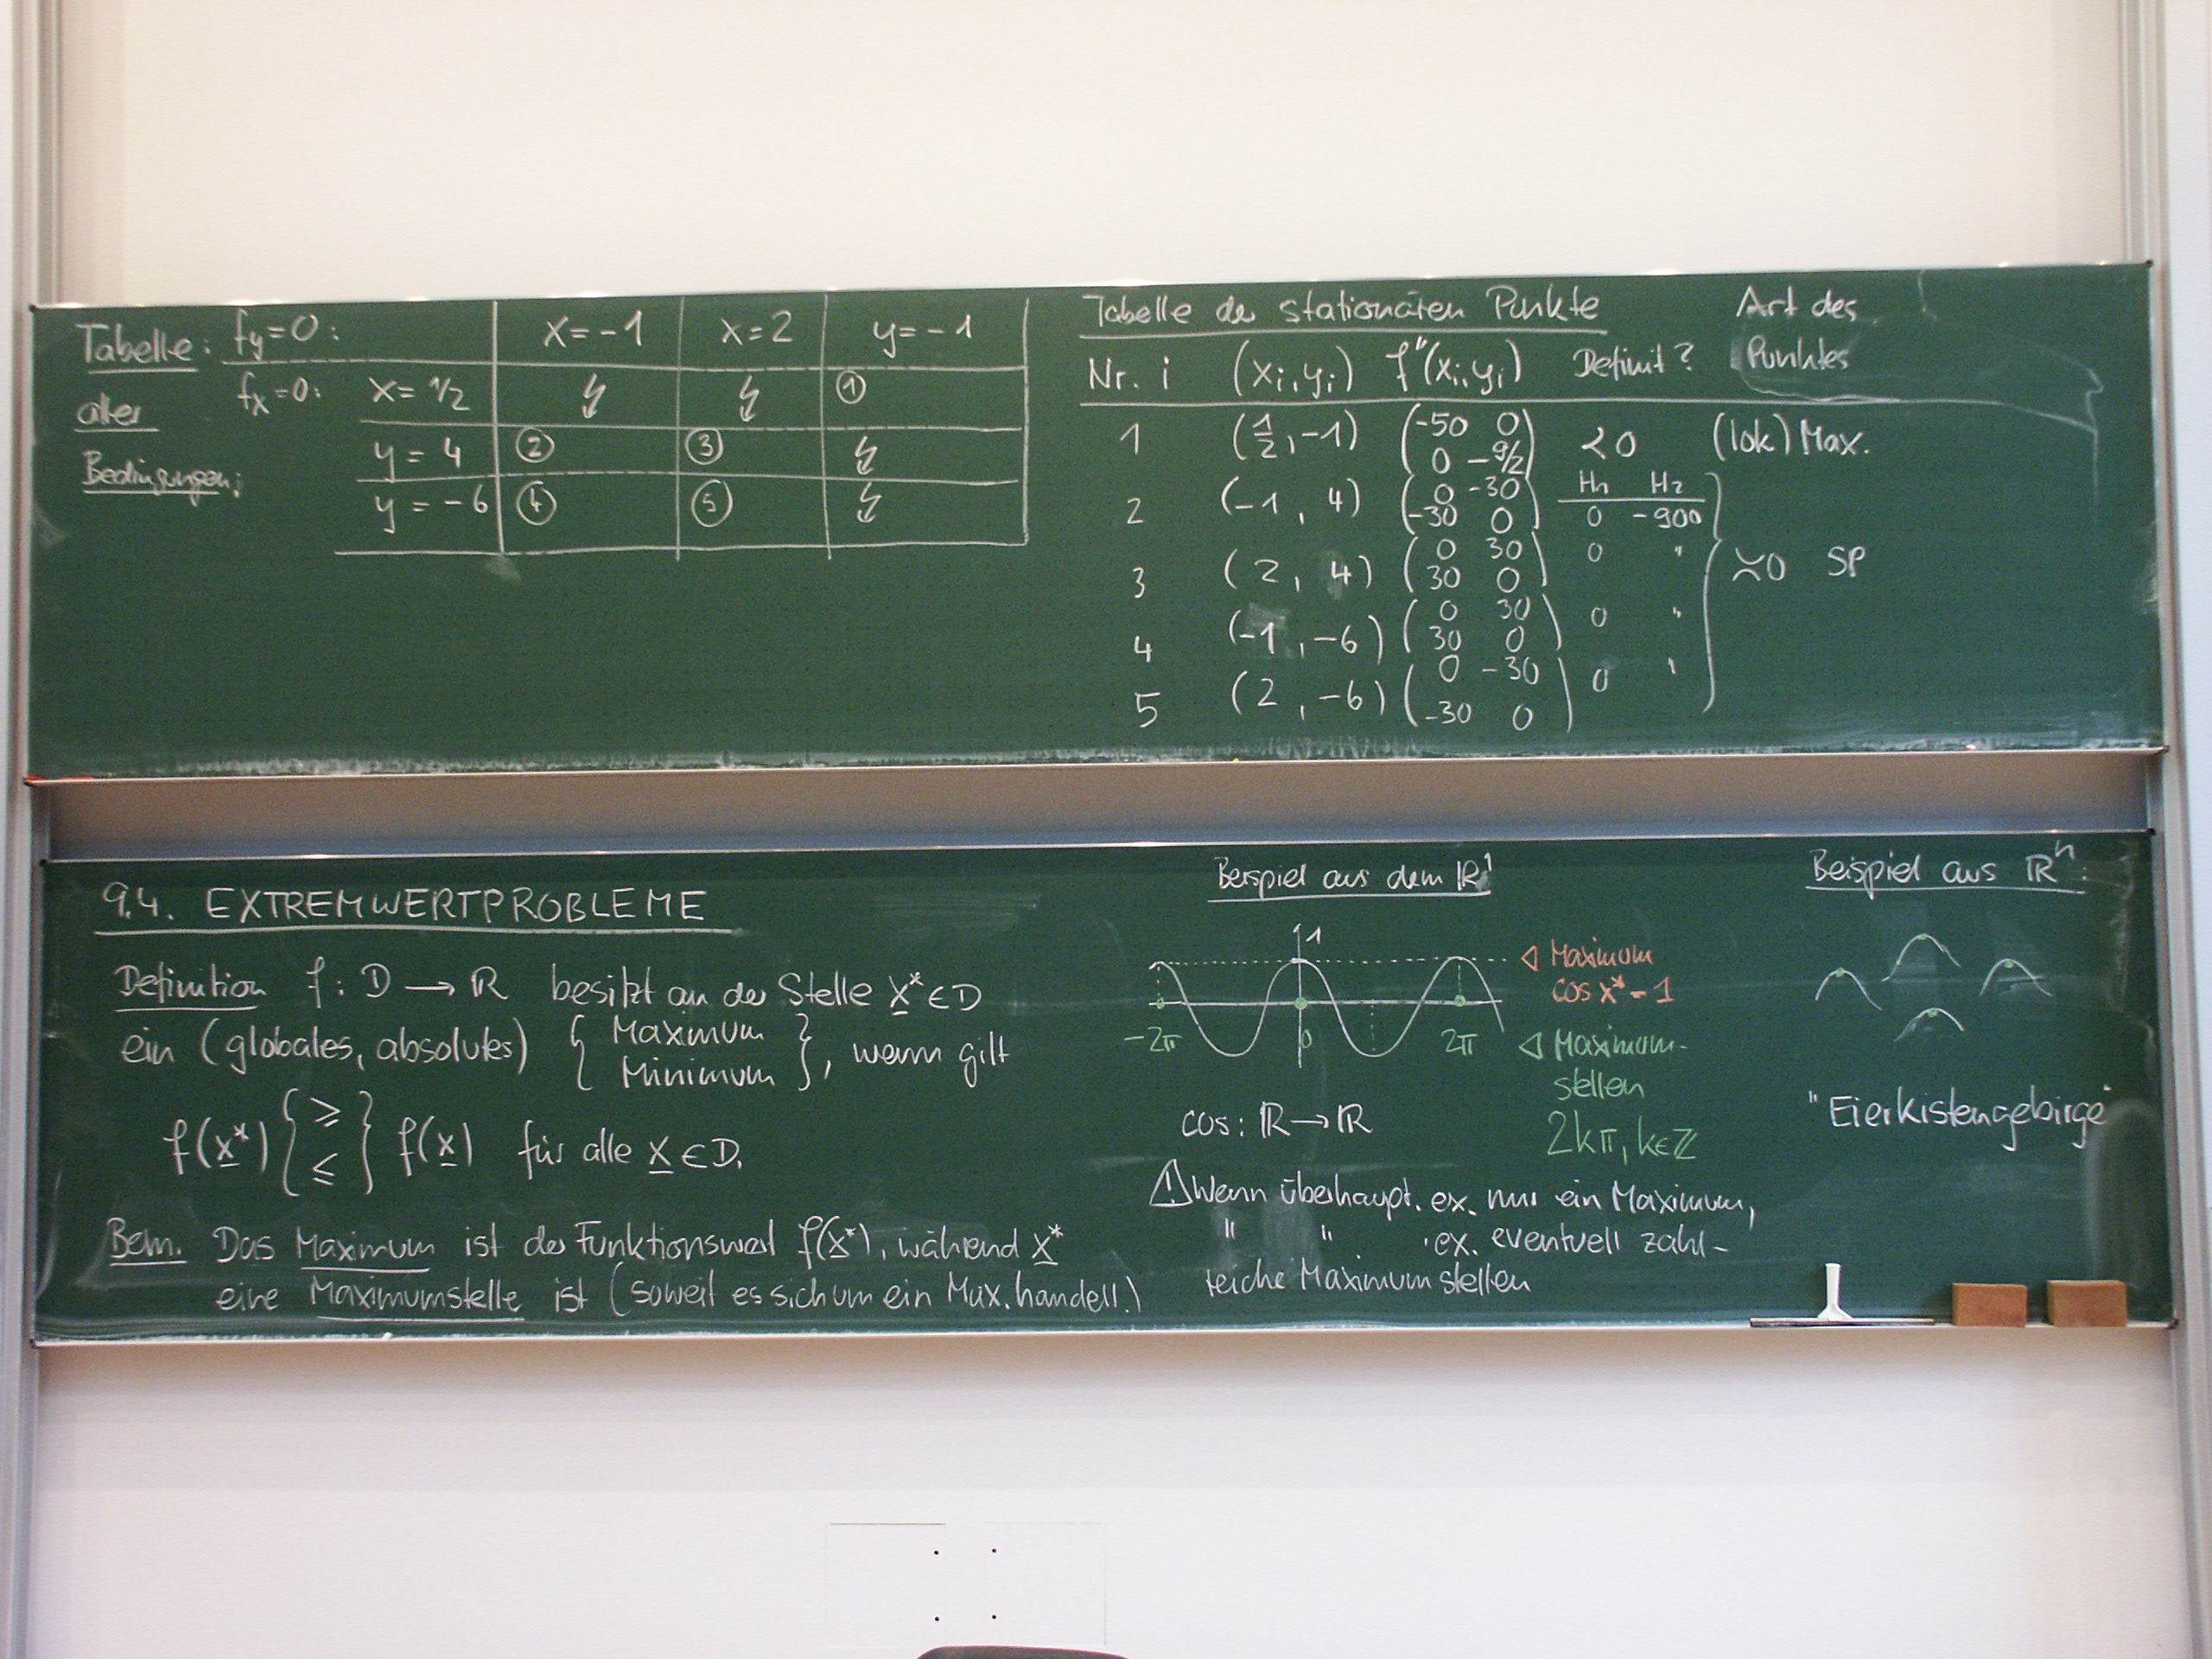 Tabelle: fy=0: x=-1 x=2 y=-1
aller fx=0: x=1/2 ↯ ↯ ①
Bedingungen: y=4 ② ③ ↯
y=-6 ④ ⑤ ↯
Tabelle der stationären Punkte
Art des Punktes
Nr. i (xi,yi) f''(xi,yi) Definit?
1 (1/2,-1) (-50 0; 0 -9/2) <0 (lok) Max.
H1 H2
2 (-1, 4) (0 -30; -30 0) 0 -900
3 (2, 4) (0 30; 30 0) 0 "
4 (-1,-6) (0 30; 30 0) 0 "
5 (2,-6) (0 -30; -30 0) 0 '
0 SP
9.4. EXTREMWERTPROBLEME
Definition f: D → ℝ besitzt an der Stelle x* ∈ D
ein (globales, absolutes) { Maximum Minimum }, wenn gilt
f(x*) { ≥ ≤ } f(x) für alle x ∈ D.
Bem. Das Maximum ist der Funktionswert f(x*), während x*
eine Maximumstelle ist (soweit es sich um ein Max. handelt.)
Beispiel aus dem ℝ¹
1
-2π 0 2π
◁ Maximum
cos x* = 1
◁ Maximum-
stellen
2kπ, k∈ℤ
cos: ℝ→ℝ
⚠ Wenn überhaupt, ex. nur ein Maximum,
" " ex. eventuell zahl-
reiche Maximumstellen
Beispiel aus ℝⁿ:
"Eierkistengebirge"